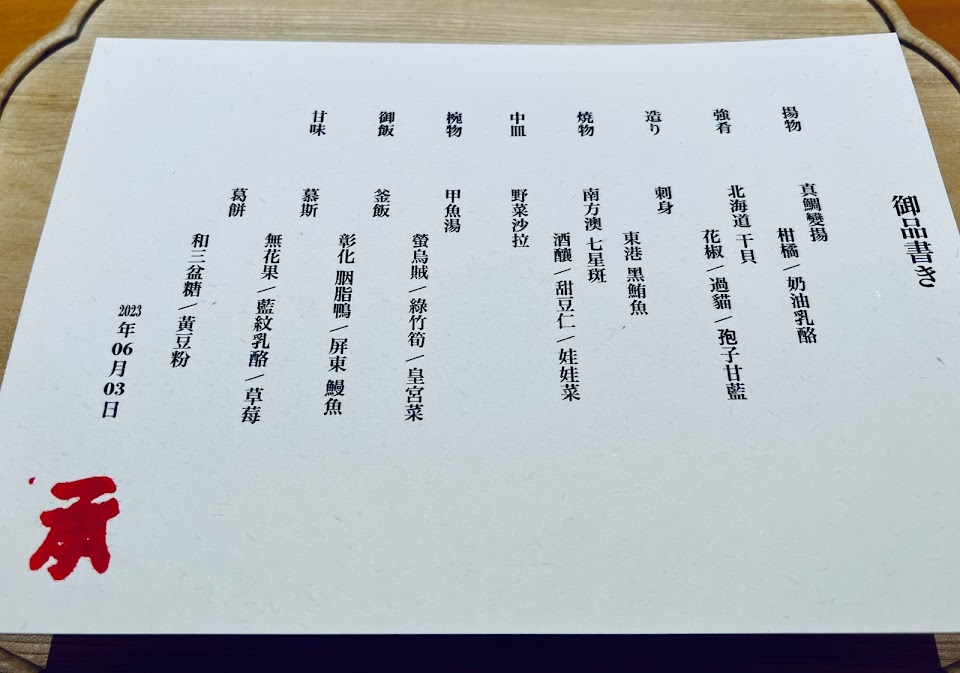 御品書き
揚物
真鯛雙揚
柑橘/奶油乳酪
強肴
北海道 干貝
花椒/過貓/孢子甘藍
造り
刺身
東港 黑鮪魚
燒物
南方澳 七星斑
酒釀/甜豆仁/娃娃菜
中皿
野菜沙拉
椀物
甲魚湯
螢烏賊/綠竹筍/皇宮菜
御飯
釜飯
彰化 胭脂鴨/屏東 鰻魚
甘味
慕斯
無花果/藍紋乳酪/草莓
葛餅
和三盆糖/黃豆粉
2023年06月03日